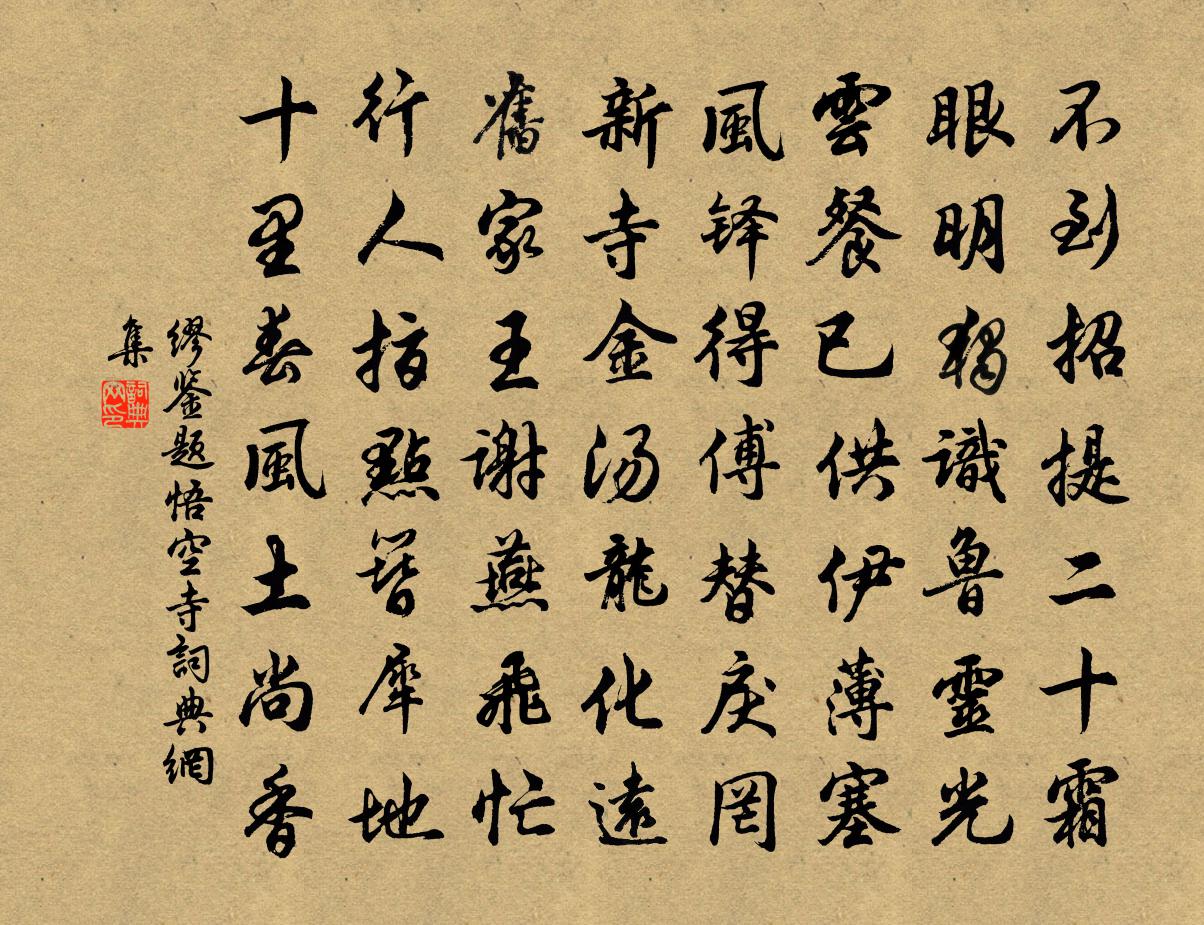 不到招提二十霜
眼明獨識魯靈光
雲餐已供伊薄塞
風铎得傅替戾罔
新寺金汤龍化遠
舊家王謝燕飛忙
行人指點簪犀地
十里春風土尚香
缪鉴題悟空寺詞典網
集
詞典网印